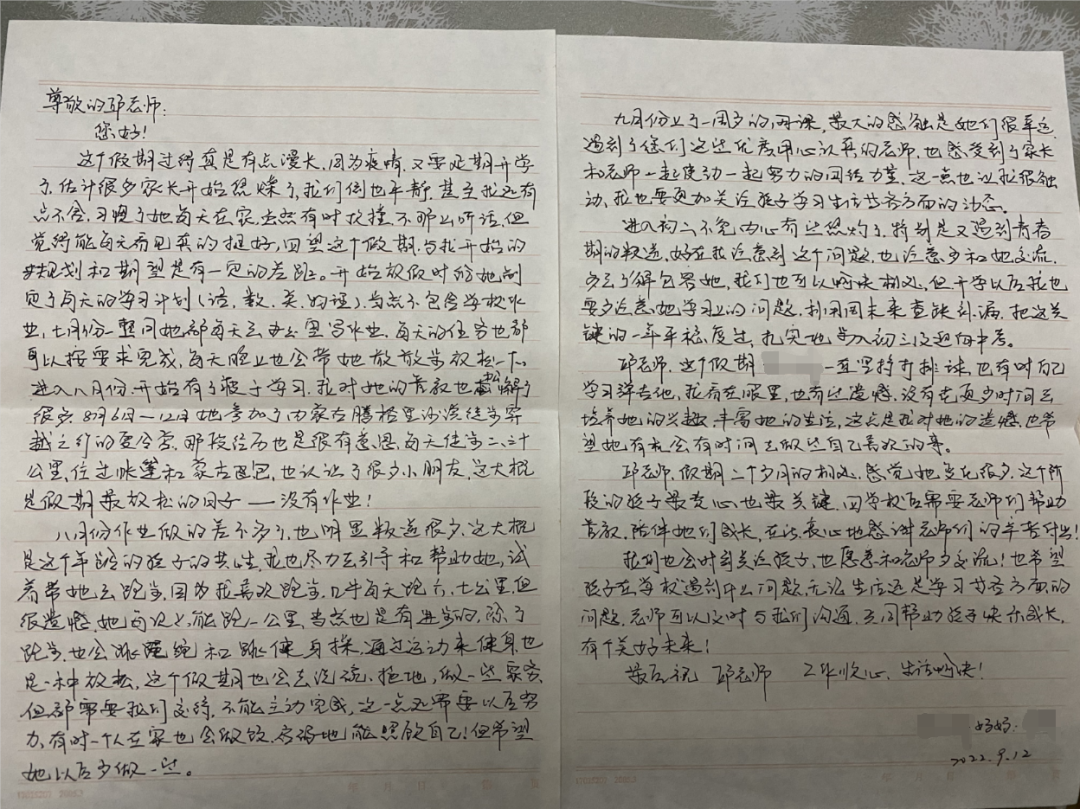 尊敬的邱老师:
您好!
这个假期过得真是有点漫长,因为疫情,又要延期开学
了,估计很多家长开始烦燥了,我们倒也平静,甚至我还有
点不舍,习惯了她每天在家,虽然有时抗撞不那么听话,但
觉得能每天看见真的挺好,回望这个假期,与我开始的
规划和期望是有一定的差距。开始放假时给她制
定了每天的学习计划(语、数、英、物理),当然不包含学校作
业,七月份一整周她都每天去办公室写作业,每天的任务也都
可以按要求完成,每天晚上也会带她散散步放松一下。
进入八月份,开始有了疲于学习,我对她的要求也松懈了
很多,8月6日—12日她参加了内蒙古腾格里沙漠徒步穿
越之行的夏令营,那段经历也是很有意思,每天徒步二、三十
公里,住过帐篷和蒙古包,也认识了很多小朋友,这大概
是假期最放松的日子——没有作业!
八月份作业做的差不多了,也明显叛逆很多,这大概
是这个年龄的孩子的共性,我也尽力去引导和帮助她,试
着带她去跑步,因为我喜欢跑步,几乎每天跑六、七公里,但
很遗憾,她每次只能跑一公里,当然也是有进步的,除了
跑步,也会跳绳和跳健身操,通过运动来健身,也
是一种放松,这个假期也会去洗碗、拖地,做一些家务,
但都需要我们交待,不能主动完成,这一点还需要以后努
力,有时一个人在家也会做饭,高调地能照顾自己!但希望
她以后多做一些。
九月份上了一周多的网课,最大的感触是她们很幸运
遇到了您们这些优秀用心认真的老师,也感受到了家长
和老师一起使劲一起努力的团结力量,这一点也让我很触
动,我也要更加关注孩子学习生活等各方面的动态。
进入初二,不免内心有些焦灼了,特别是又遇到青春
期的叛逆,好在我注意到这个问题,也注意多和她交流,
多去了解包容她,我们也可以愉快相处,但开学以后我也
要多注意她学习上的问题,利用周末来查缺补漏,把这关
键的一年平稳度过,扎实地进入初三及迎向中考。
邱老师,这个假期 一直坚持打排球,也有时自己
学习弹吉他,我看在眼里,也有过遗憾,没有在更多时间去
培养她的兴趣,丰富她的生活,这点是我对她的遗憾,也希
望她有机会有时间去做些自己喜欢的事。
邱老师,假期二个多月的相处,感觉她变化很多,这个阶
段的孩子最费心也最关键,回学校后需要老师们帮助
陪伴她们成长,在此衷心地感谢老师们的辛苦付出!
我们也会时刻关注孩子,也愿意和老师多交流!也希望
孩子在学校遇到什么问题,无论生活还是学习等各方面的
问题,老师可以及时与我们沟通,共同帮助孩子快乐成长,
有个美好未来!
最后祝 邱老师 工作顺心,生活愉快!
妈妈:
2022.9.12